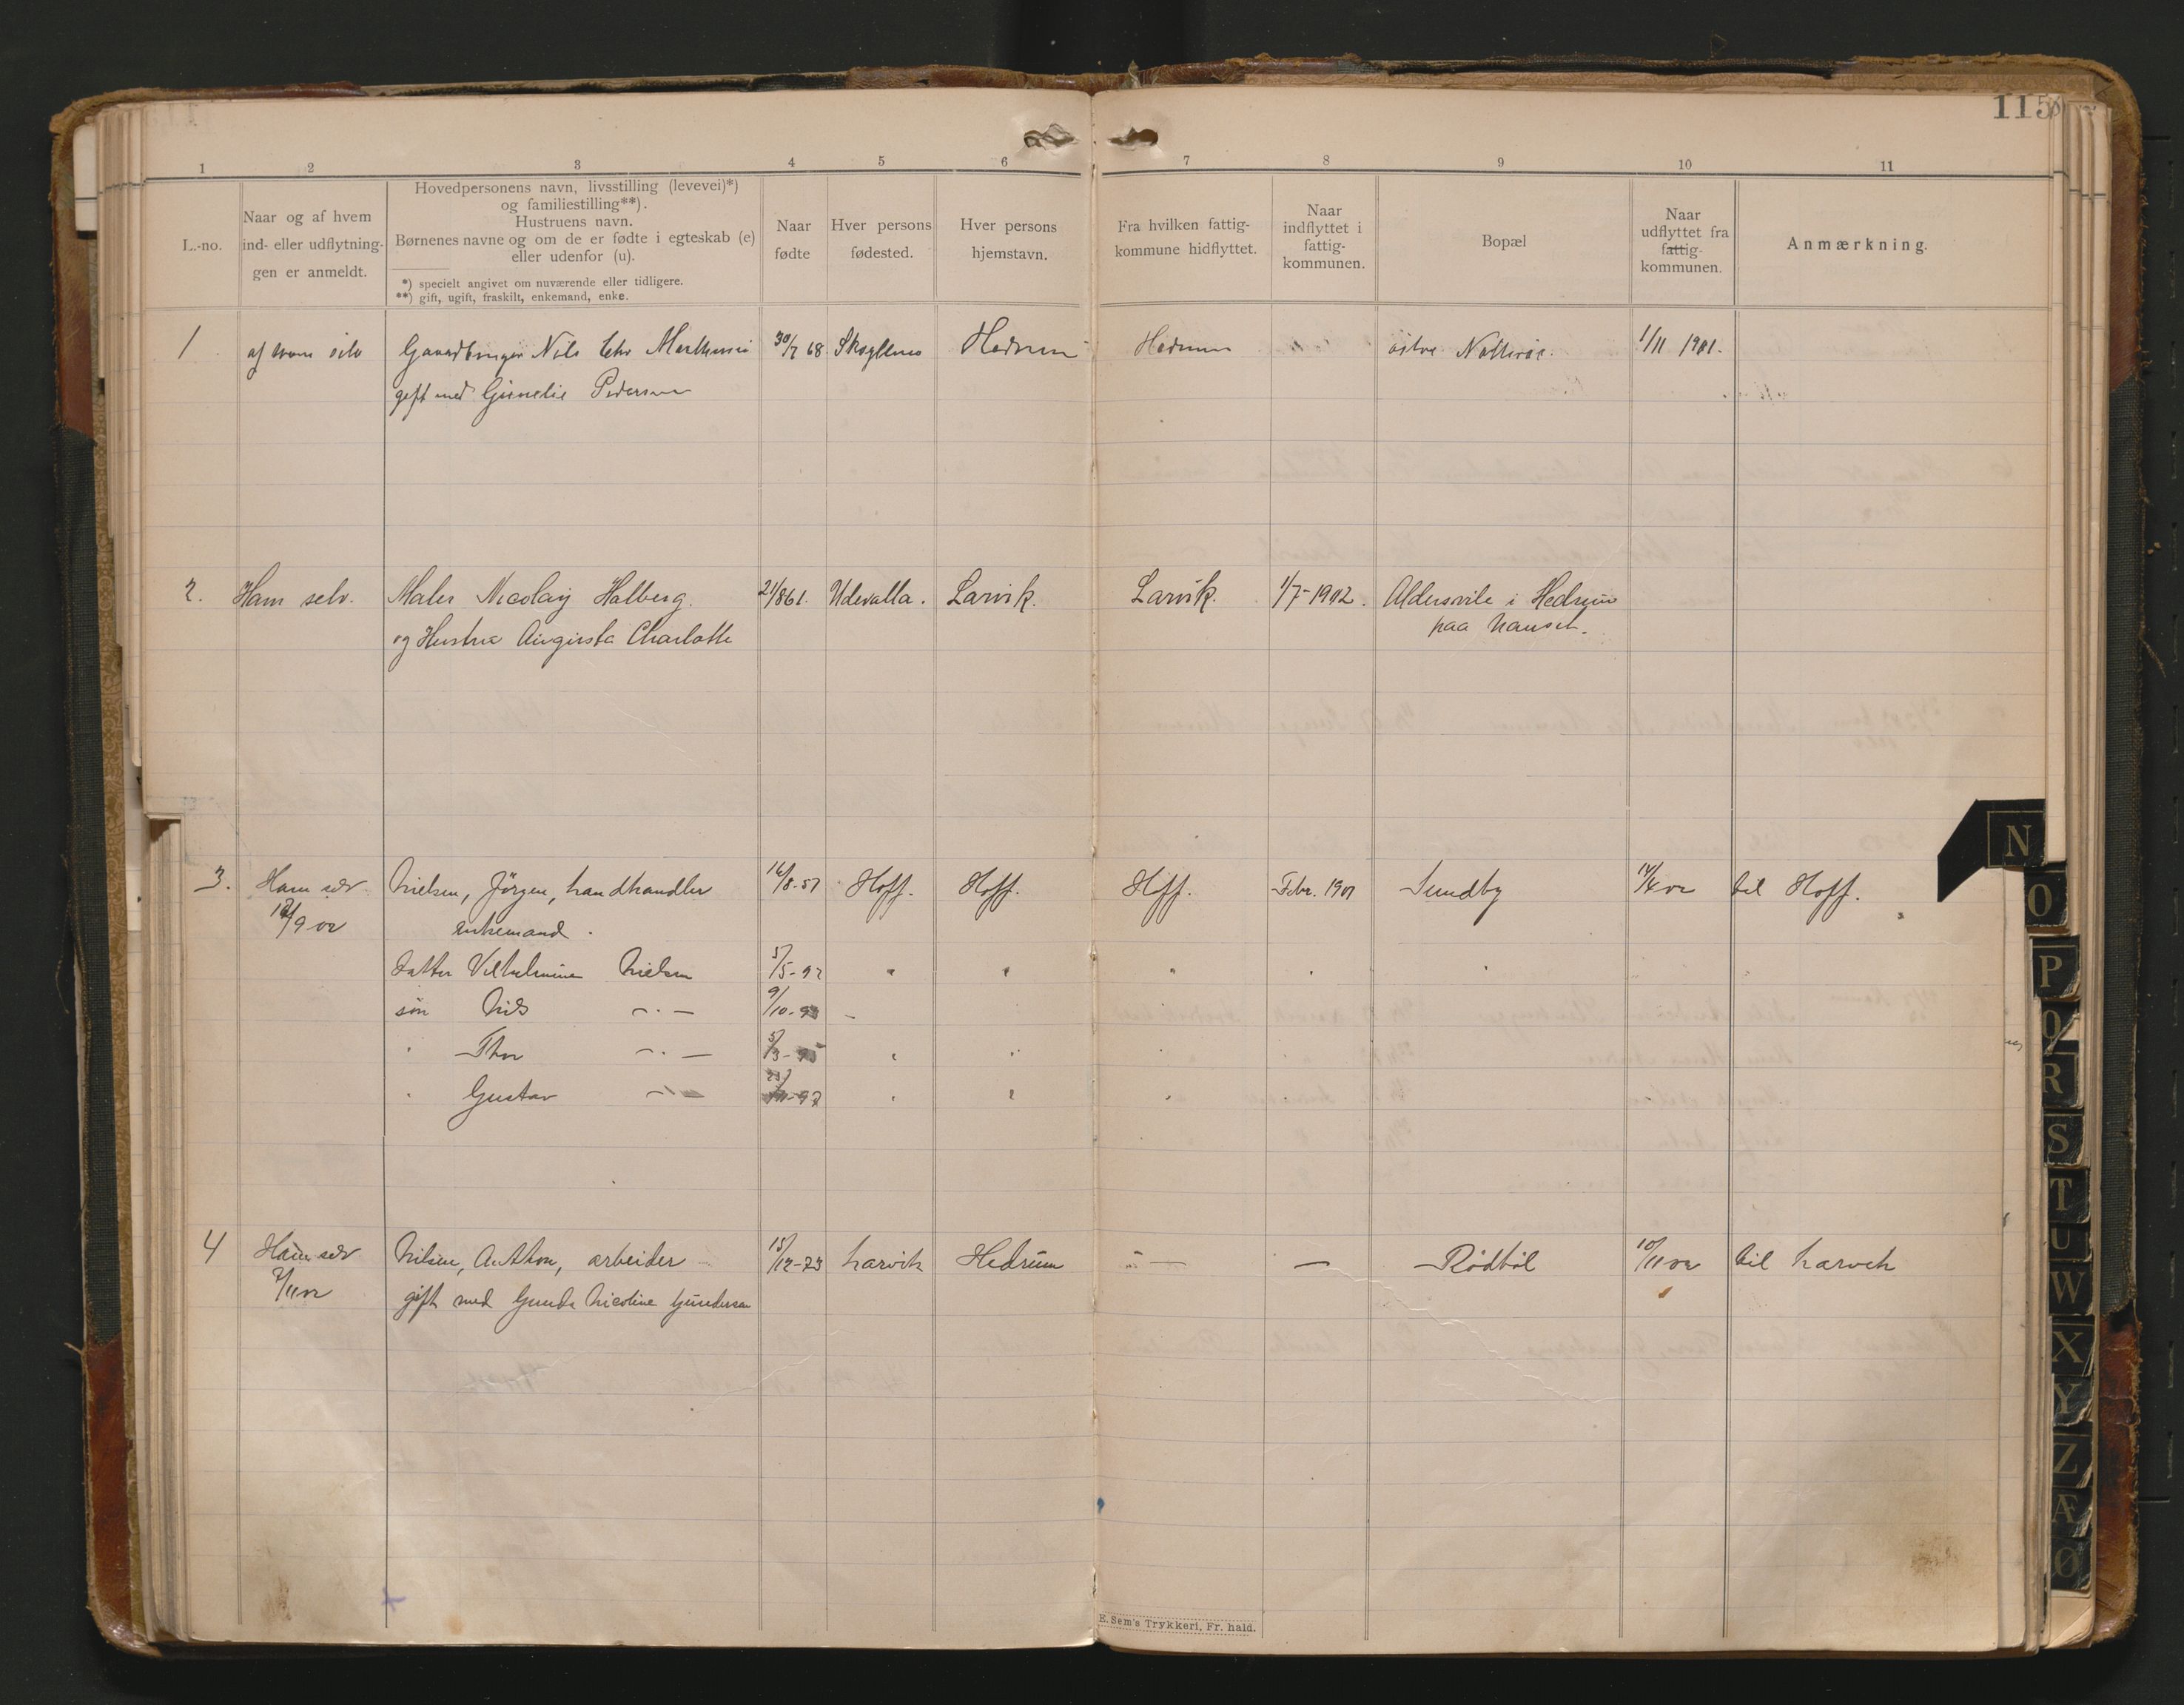 115
1 2 3 4 5 6 7 8 9 10 11
L.-no.
Naar og af hvem
ind- eller udflytnin-
gen er anmeldt.
Hovedpersonens navn, livsstilling (levevei)*)
og familiestilling**).
Hustruens navn.
Børnenes navne og om de er fødte i egteskab (e)
eller udenfor (u).
*) specielt angivet om nuværende eller tidligere.
**) gift, ugift, fraskilt, enkemand, enke.
Naar
fødte
Hver persons
fødested.
Hver persons
hjemstavn.
Fra hvilken fattig-
kommune hidflyttet.
Naar
indflyttet i
fattig-
kommunen.
Bopæl
Naar
udflyttet fra
fattig-
kommunen.
Anmærkning.
1 af ham selv Gaardbruger Nils Chr 30/7 68 Hedrum Hedrum østre 1/11 1901.
gift med Pedersen
2. Ham selv. Maler Nicolay Halberg. 21/861. Udevalla. Larvik. Larvik. 1/7-1902. Aldershvile i Hedrum
og Hustru Augusta Charlotte paa Nanset.
3. Ham selv Nielsen, Jörgen, handhandler 16/8-57 Hoff. Hoff. Hoff. Febr. 1901 Sundby 14/4 02 til Hoff.
12/9 02 enkemand.
datter Vilhelmine Nielsen 5/5-92 " " " " "
sön Nils -"- 9/10-93 -
" Thor -"- 5/3-95 " " " "
" Gustav -"- 97 " " " "
4 Ham selv Nilsen, Anthon, arbeider - 15/12-73 Larvik Hedrum — — Rödböl 10/11 02 til Larvik
7/11 02 gift med Gunda Nicoline Gundersen
N
O
P
Q
R
S
T
U
W
X
Y
Z
Æ
Ø
E. Sem's Trykkeri, Fr. hald.